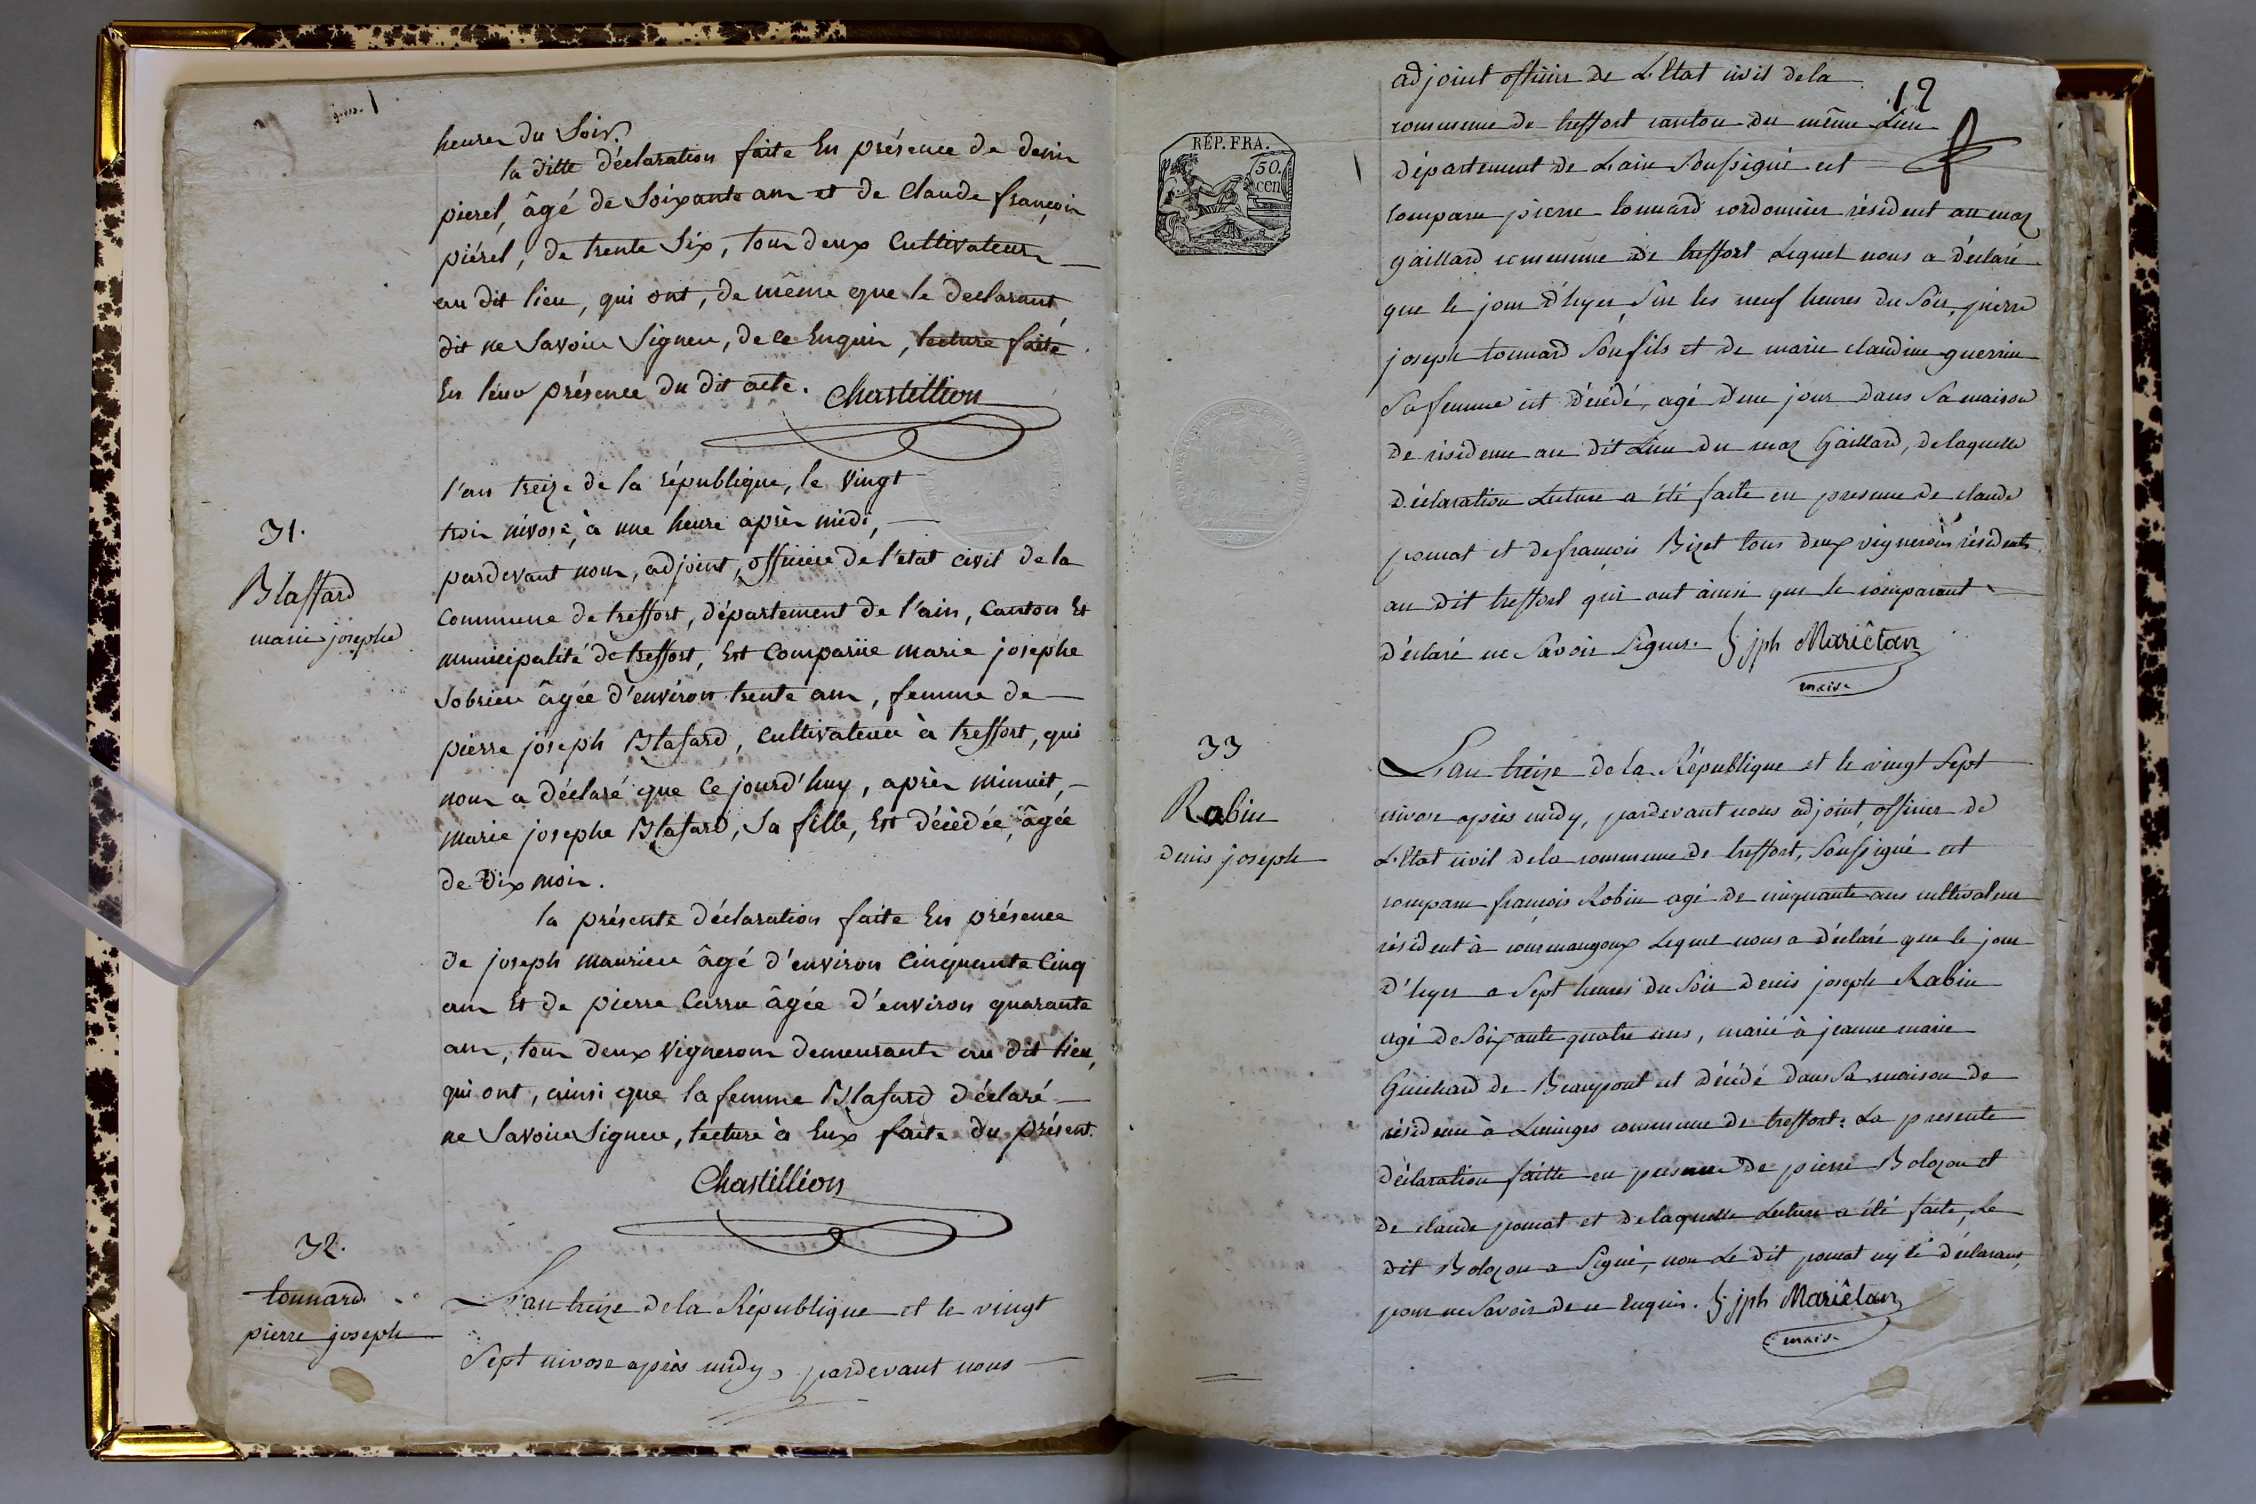 heures du Soir.
la ditte déclaration faite En présence de denis
pierel, âgé de Soixante ans et de Claude françois
piérel, de trente Six, tous deux Cultivateurs
au dit lieu, qui ont, de même que le declarant,
dit ne Savoir Signer, de ce Enquis, lecture faite
En leur présence du dit acte. Chastillion
31.
Blaffard
marie josephe
l'an treize de la république, le Vingt
trois nivose, à une heure après midi,
pardevant nous, adjoint, officier de l'état civil de la
Commune de treffort, département de l'ain, Canton Et
municipalité de treffort, Est Comparüe marie josephe
Sobrieu âgée d'environ trente ans, femme de
pierre joseph Blafard, Cultivateur à treffort, qui
nous a déclaré que Ce jourd'huy, après minuit,
marie josephe Blafard, Sa fille, Est décédée, âgée
de Dix mois.
la présente déclaration faite En présence
de joseph maurier âgé d'environ Cinquante Cinq
ans Et de pierre Carru âgée d'environ quarante
ans, tous deux Vignerons demeurants au dit lieu,
qui ont, ainsi que la femme Blafard déclaré
ne Savoir Signer, lecture à Eux faite du présent.
Chastillion
32.
tonnard
pierre joseph
L'an treize de la République et le vingt
Sept nivose après midy, pardevant nous
12
RÉP. FRA.
50.
cen
adjoint officier de L'Etat civil de la
commune de treffort canton du même Lieu
département de Lain Soussigné est
comparu pierre tonnard cordonnier résident au maz
gaillard commune de treffort Lequel nous a déclaré
que le jour d'hyer Sur les neuf heures du Soir, pierre
joseph tonnard Son fils et de marie claudine guerrin
Sa femme est décédé, agé d'un jour dans Sa maison
de résidence au dit Lieu du maz Gaillard, de laquelle
déclaration Lecture a été faite en presence de claude
pomat et de françois Bizet tous deux vignerons résidents
au dit treffort qui ont ainsi que le comparant
déclaré ne Savoir Signer. jph Mariêtan
maire
33
Rabin
denis joseph
L'an treize de la République et le vingt Sept
nivose après midy, pardevant nous adjoint officier de
L'Etat civil de la commune de treffort, Soussigné est
comparu françois Robin agé de cinquante ans cultivateur
résident à courmangoux Lequel nous a déclaré que le jour
d'hyer a Sept heures du Soir denis joseph Rabin
agé de Soixante quatre ans, marié à jeanne marie
Guichard de Beaupont est décédé dans Sa maison de
résidence à Lucinges commune de treffort. La presente
déclaration faitte en presence de pierre Bolozon et
de claude pomat et de laquelle Lecture a été faite, Le
dit Bolozon a Signé, non Le dit pomat ny le déclarant,
pour ne Savoir de ce Enquis. jph Mariêtan
maire